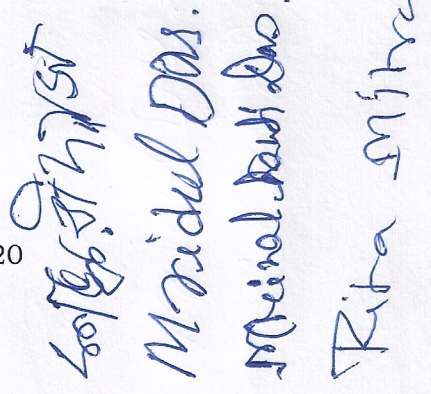 Mridul Das.
Mrinal Kanti Das
Rita Mitra
20